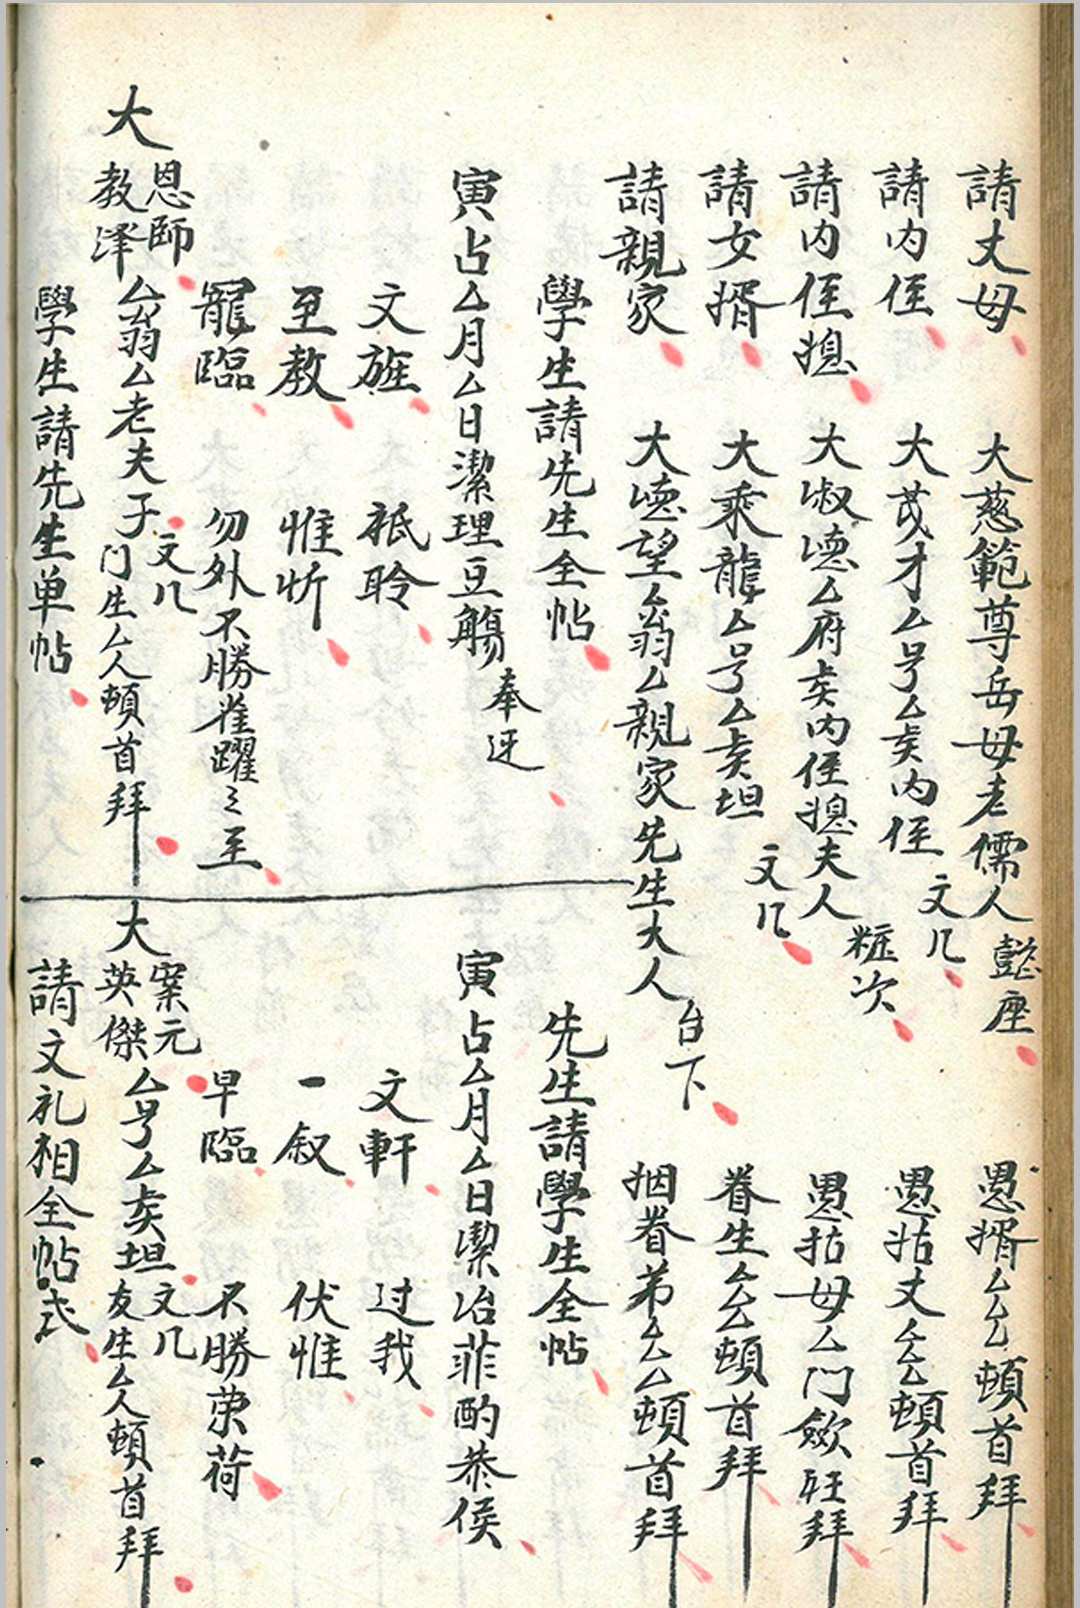 請丈母 大慈範尊岳母老儒人 懿座 愚婿厶厶頓首拜
請内侄 大茂才厶号厶矦内侄 文几 愚姑丈厶厶頓首拜
請内侄媳 大淑德厶府矦内侄媳夫人 粧次 愚姑母厶门歛衽拜
請女婿 大乘龍厶号厶矦坦 文几 眷生厶厶頓首拜
請親家 大德望厶翁厶親家先生大人 台下 姻眷弟厶厶頓首拜
學生請先生全帖
寅占厶月厶日潔理豆觴 奉迓
文旌 祇聆
至教 惟忻
寵臨 勿外不勝雀躍之至
大恩師教澤厶翁厶老夫子 文几 门生厶人頓首拜
學生請先生单帖
先生請學生全帖
寅占厶月厶日潔治菲酌恭侯
文軒 过我
一叙 伏惟
早臨 不勝荣荷
大案元英傑厶号厶矦坦 文几 友生厶人頓首拜
請文礼相全帖式